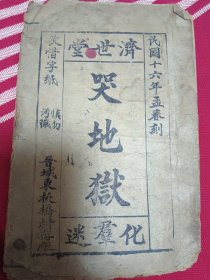 民國十六年孟春刻
濟世堂
哭地獄
化羣迷
敬惜字紙
慎勿
污穢
晉城東板橋